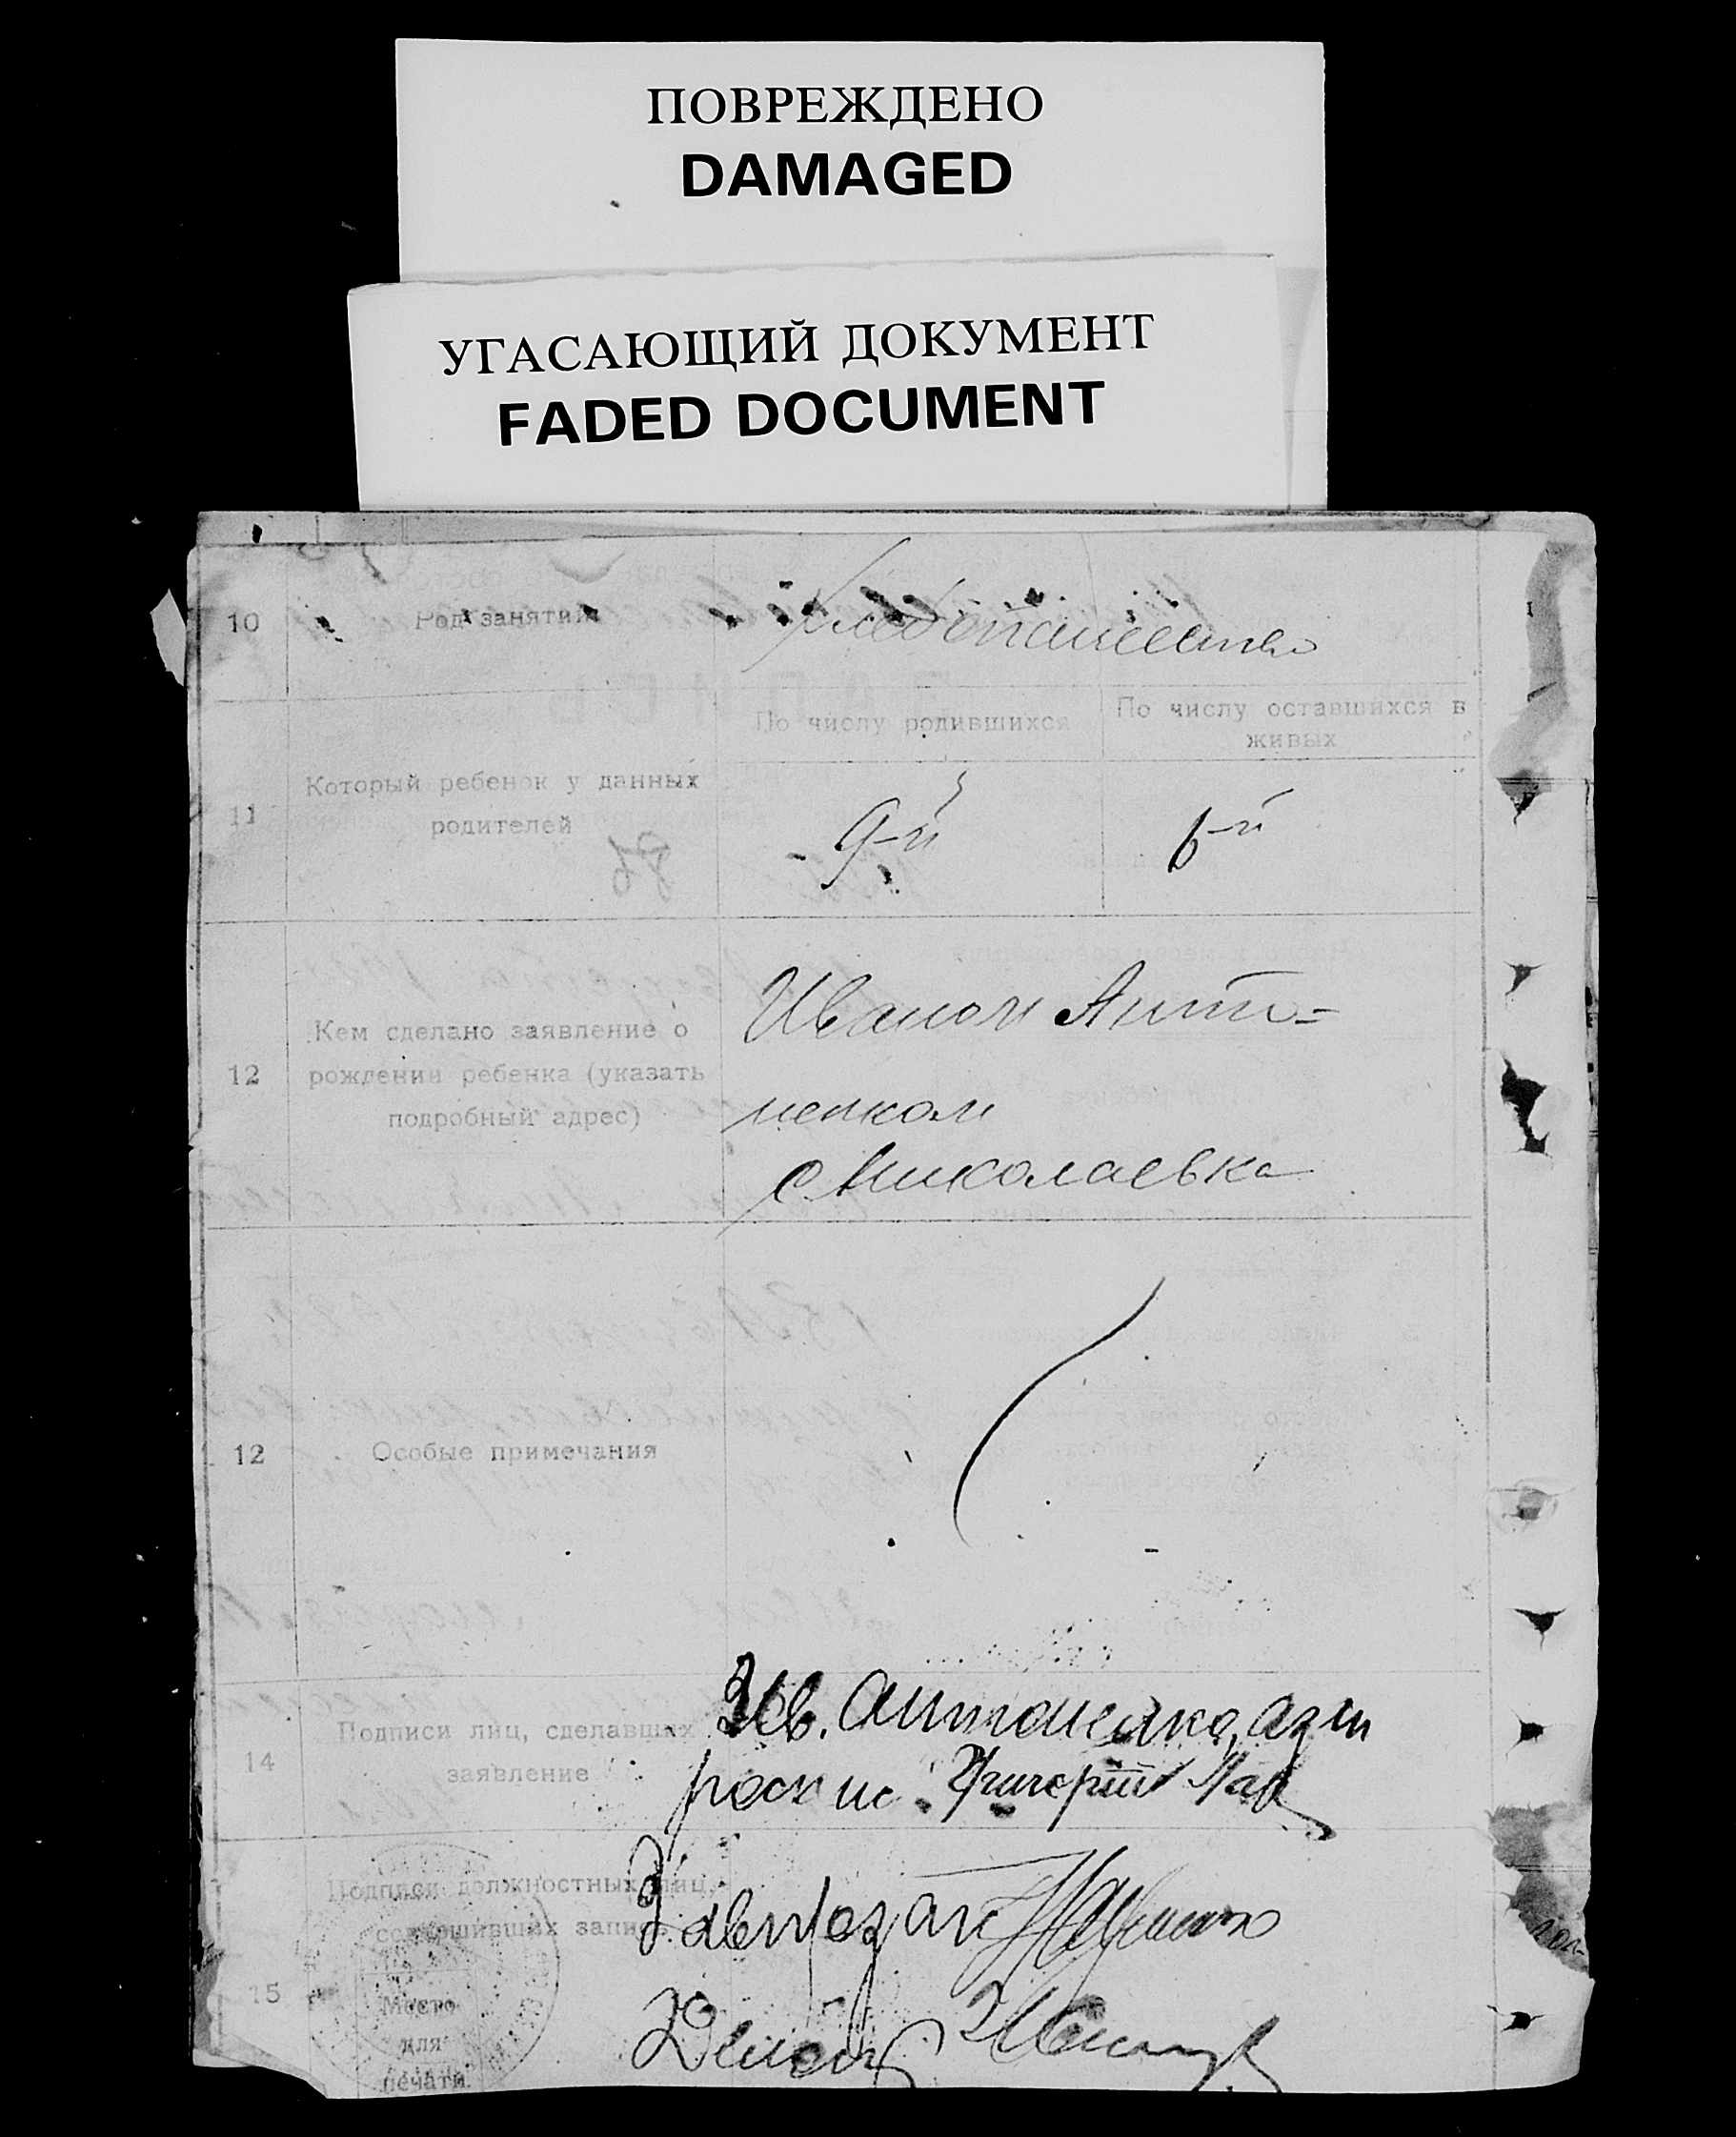 ПОВРЕЖДЕНО
DAMAGED
УГАСАЮЩИЙ ДОКУМЕНТ
FADED DOCUMENT
10 Род занятий Хлебопашество
По числу родившихся
По числу оставшихся в живых
11 Который ребенок у данных
родителей
9-й 6-й
12 Кем сделано заявление о
рождении ребенка (указать
подробный адрес)
Иваном Анто-
ненком
с Николаевка
12 Особые примечания
14 Подписи лиц, сделавших
заявление
Ив. Антоненко, а за
Григорий
15 Подписи должностных лиц,
совершивших запись
Место
для
печати